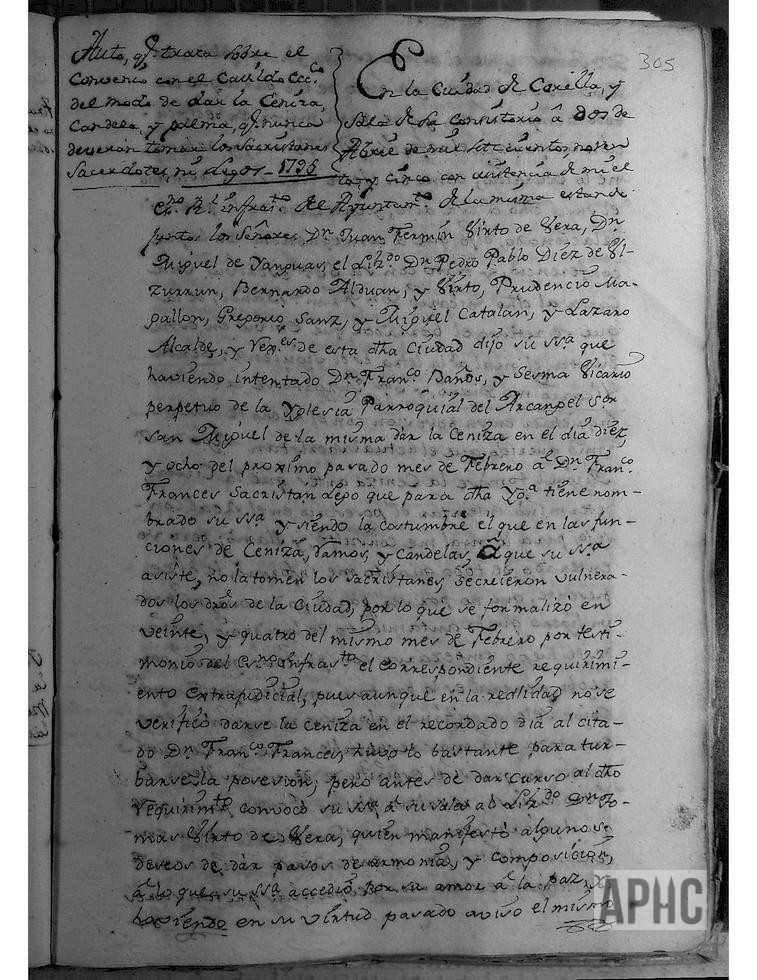 305
Auto, qᵉ. trata sobre el
convenio con el Cavildo Ecc.ᶜᵒ
del modo de dar la Ceniza,
Candela, y palma, qᵉ. nunca
deveran tomar los sacristanes
Sacerdotes, ni Legos - 1795
En la Ciudad de Corella, y
Sala de su Consistorio â dos de
Abril de mil setecientos, noven
ta, y cinco con asistencia de mi el
es.ⁿᵒ R.ˡ infras.ᵗᵒ del Ayuntam.ᵗᵒ de la misma estando
juntos los Señores Dⁿ. Juan Fermin Virto de Vera, Dⁿ.
Miguel de Yanguas, el Liz.ᵈᵒ Dⁿ. Pedro Pablo Diez de Ul-
zurrun, Bernardo Alduan, y Virto, Prudencio Ma-
pallon, Gregorio Sanz, y Miguel Catalan, y Lazaro
Alcalde, y Reg.ᵉˢ de esta dha Ciudad dijo su ssᵃ que
haviendo intentado Dⁿ. Fran.ᶜᵒ Baños, y Sesma Vicario
perpetuo de la Yglesia Parroquial del Arcangel S.ᵒʳ
san Miguel de la misma dar la Ceniza en el dia diez,
y ocho del proximo pasado mes de Febrero âˡ Dⁿ. Fran.ᶜᵒ
Frances Sacristan Lego que para dha Yg.ᵃ tiene nom-
brado su ssᵃ y siendo la costumbre el que en las fun-
ciones de Ceniza, Ramos, y Candelas, â que su ssᵃ
asiste, no la tomen los sacristanes, se creieron vulnera-
dos los dros de la Ciudad, por lo que se formalizò en
veinte, y quatro del mismo mes de Febrero por testi-
monio del es.ⁿᵒ Infras.ᵗᵒ el correspondiente requirimi-
ento extrajudicial, pues aunque en la realidad no se
verificò darse la Ceniza en el recordado dia al cita-
do Dⁿ. Fran.ᶜᵒ Frances, huvo lo bastante para tur-
barse la posesion; pero antes de dar curso al dho
requirim.ᵗᵒ convocò su ssᵃ â su sala al Liz.ᵈᵒ Dⁿ. To-
mas Virto de Vera, quien manifestò algunos
deseos de dar pasos de armonia, y composicion,
â lo que su ssᵃ accediò por su amor â la paz, y
haviendo en su virtud pasado aviso el mismo
APHC